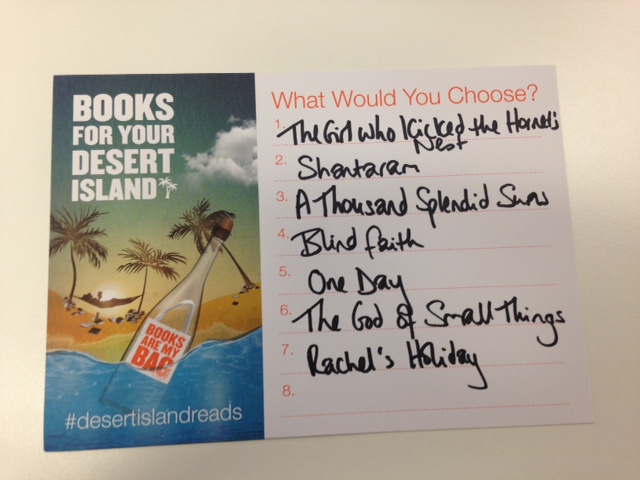 BOOKS
FOR YOUR
DESERT
ISLAND
BOOKS
ARE MY
BAG
#desertislandreads
What Would You Choose?
1. The Girl Who Kicked the Hornet's
Nest
2. Shantaram
3. A Thousand Splendid Suns
4. Blind faith
5. One Day
6. The God of Small Things
7. Rachel's Holiday
8.